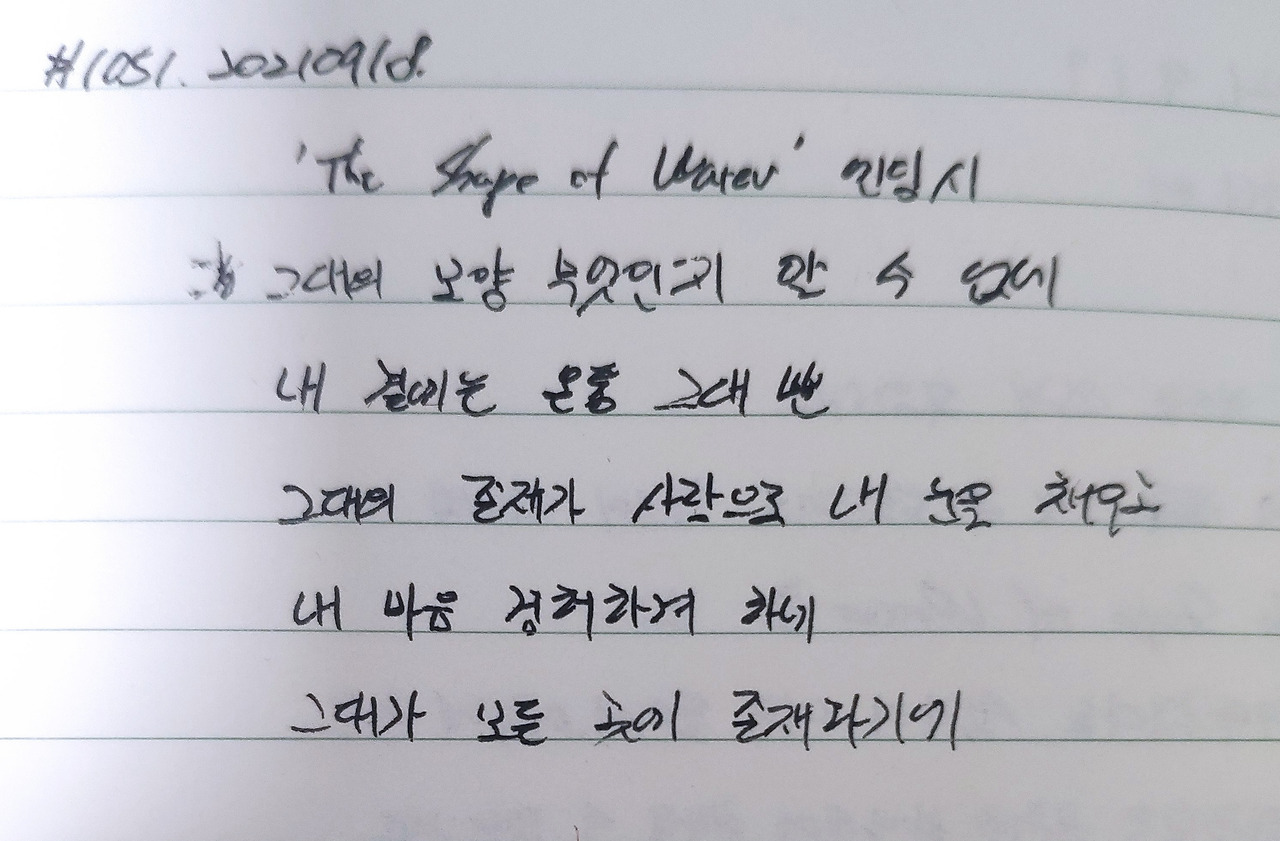 #1051. 20210918.
'The Shape of Water' 엔딩 시
그대의 모양 무엇인지 알 수 없네
내 곁에는 온통 그대 뿐
그대의 존재가 사랑으로 내 눈을 채우고
내 마음 겸허하게 하네
그대가 모든 곳에 존재하기에